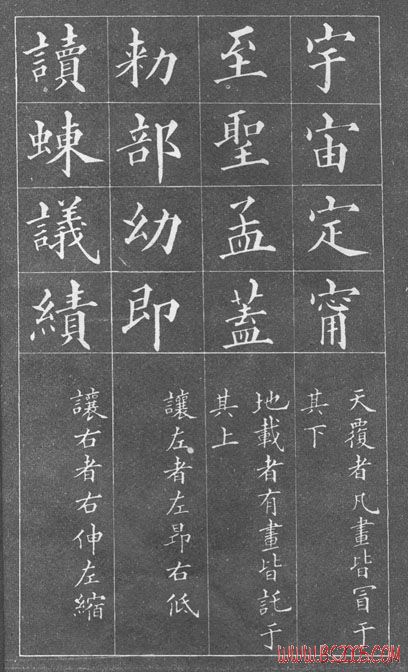 宇宙定甯
天覆者凡畫皆冒于
其下
至聖孟蓋
地載者有畫皆託于
其上
勅部幼即
讓左者左昂右低
讀蝀議績
讓右者右伸左縮